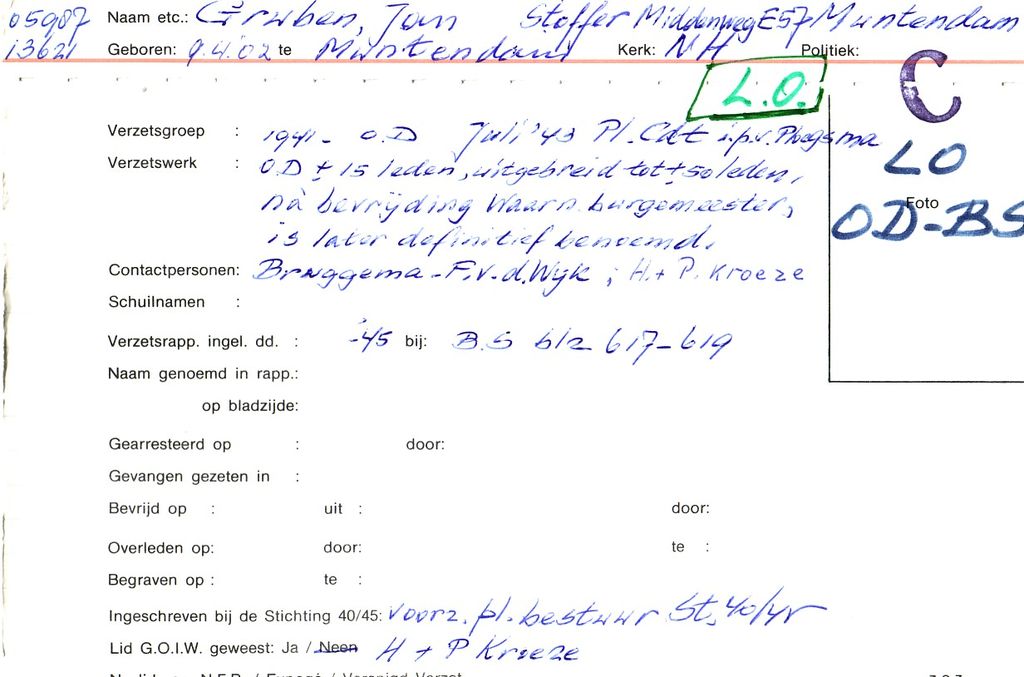 05987 Naam etc.: Gruben, Jan Stoffer Middenweg E57 Muntendam
13621 Geboren: 9.4.02 te Muntendam Kerk: NH Politiek:
L.O. C
Verzetsgroep : 1941 - O.D Juli '43 Pl. Cdt i.p.v. Ploegsma
LO
Verzetswerk : O.D ± 15 leden, uitgebreid tot ± 50 leden,
Foto
nà bevrijding Waarn. burgemeester,
OD-BS
is later definitief benoemd.
Contactpersonen: Bruggema - F.v.d. Wijk ; H. + P. Kroeze
Schuilnamen :
Verzetsrapp. ingel. dd. : -45 bij: B.S blz 617-619
Naam genoemd in rapp.:
op bladzijde:
Gearresteerd op : door:
Gevangen gezeten in :
Bevrijd op : uit : door:
Overleden op: door: te :
Begraven op : te :
Ingeschreven bij de Stichting 40/45: Voorz. pl. bestuur St. 40/45
Lid G.O.I.W. geweest: Ja / Neen H + P Kroeze